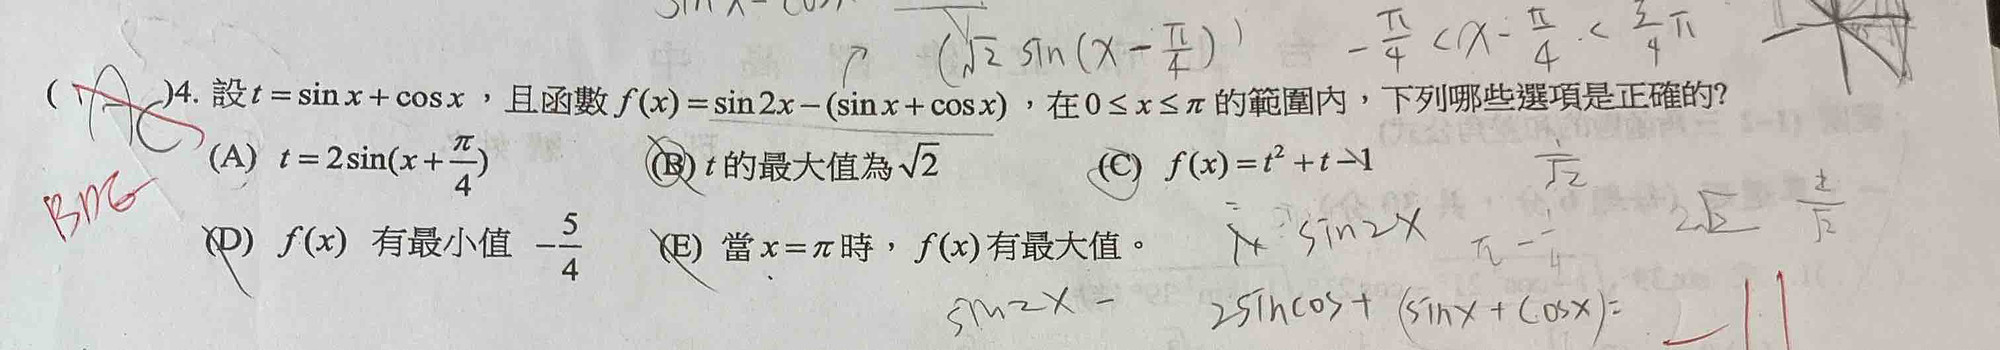 (√2 sin(x-π/4)) -π/4 < x-π/4 < 3/4 π
( AC )4. 設 t = sin x + cos x ，且函數 f(x) = sin 2x - (sin x + cos x) ，在 0 ≤ x ≤ π 的範圍內，下列哪些選項是正確的?
(A) t = 2sin(x + π/4) (B) t 的最大值為 √2 (C) f(x) = t² + t - 1
BDE
(D) f(x) 有最小值 -5/4 (E) 當 x = π 時，f(x) 有最大值。
sin2x
sin2x - 2sincos + (sinx + cosx) =
-11